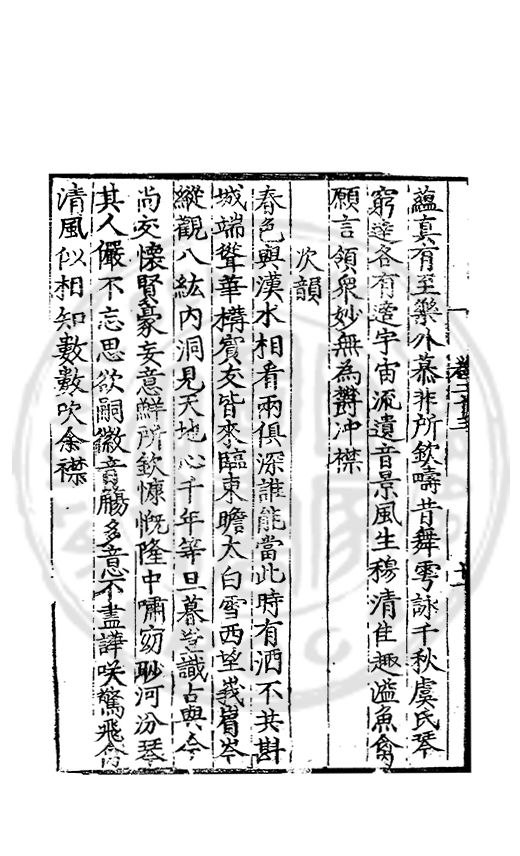 蘊真有至樂外慕非所欽疇昔舞雩詠千秋虞氏琴
窮達各有適宇宙流遺音景風生穆清佳趣溢魚禽
願言領眾妙無為鬱冲襟
次韻
春色與漢水相看兩俱深誰能當此時有酒不共斟
城端聳華構賓友皆來臨東瞻太白雪西望峩眉岑
縱觀八紘內洞見天地心千年等旦暮豈識古與今
尚友懷賢豪妄意鮮所欽慷慨隆中嘯窈眇河汾琴
其人儼不忘思欲嗣徽音觴多意不盡譁笑驚飛禽
清風似相知數數吹余襟